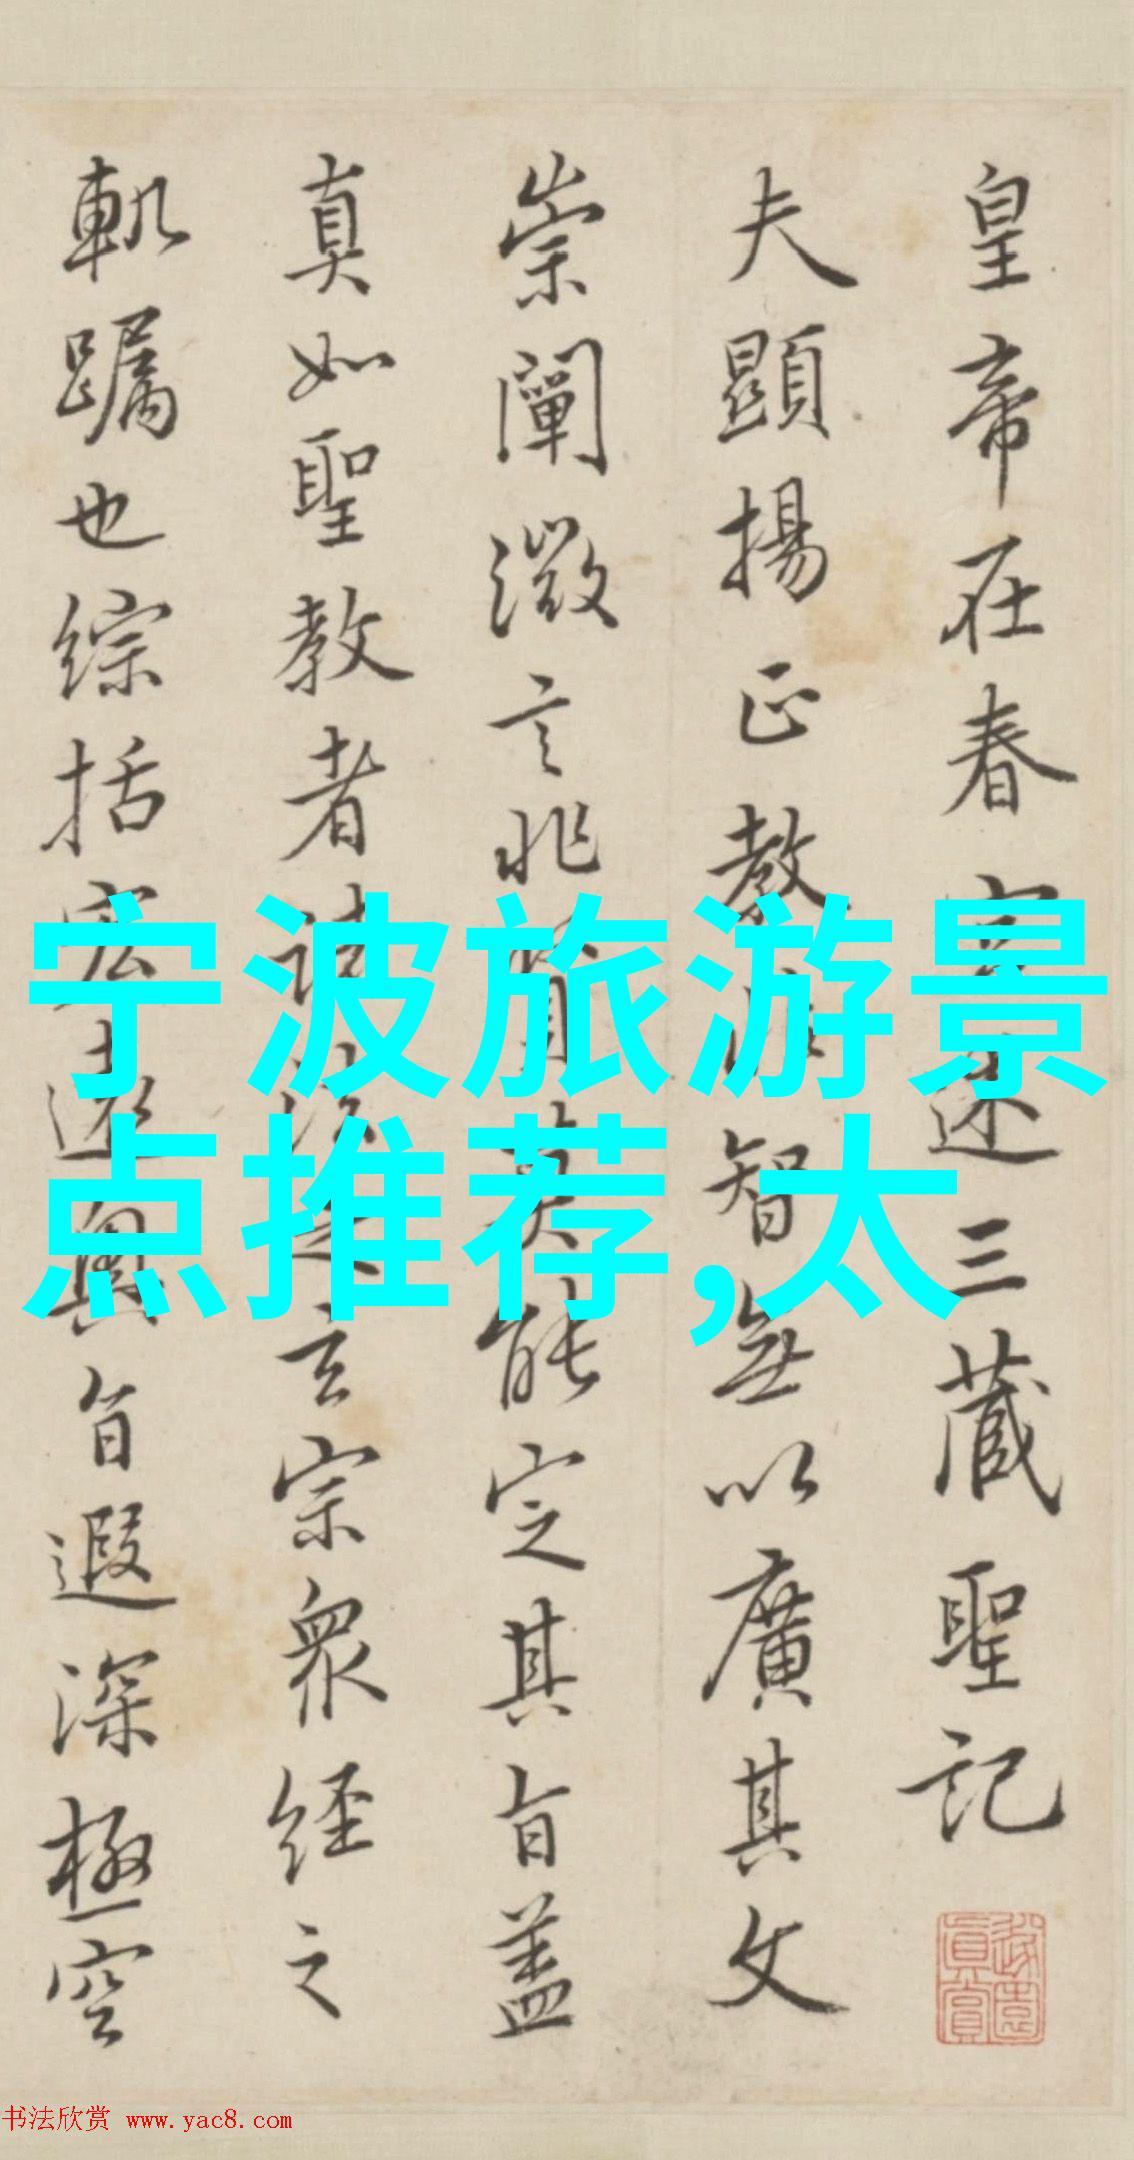 皇帝在春宮述三藏聖記
夫顯揚正教非智無以廣其文
崇闡微言非賢莫能定其旨蓋
真如聖教者諸法之玄宗眾經之
軌躅也綜括宏遠奧旨遐深極空
宁波旅游景
点推荐,太
书法欣赏 www.yac8.com